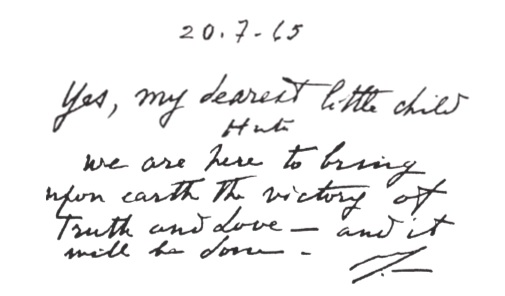 20.7-65
Yes, my dearest little child
Huta
we are here to bring
upon earth the victory of
Truth and Love — and it
will be done -